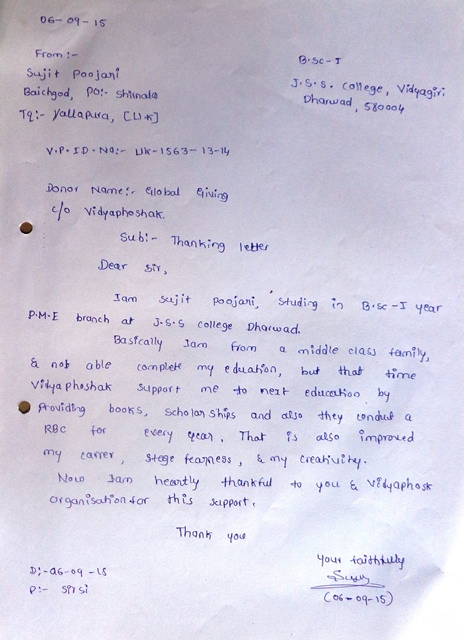 06-09-15
From:-
Sujit Poojari
Baichgod, PO:- Shirnala
Tq:- Yallapura, [U.K]
B.Sc-I
J.S.S. College, Vidyagiri
Dharwad, 580004
V.P.ID.NO:- UK-1563-13-14
Donor Name:- Global Giving
c/o Vidyaphoshak.
Sub:- Thanking letter
Dear Sir,
Iam Sujit Poojari, Studing in B.Sc-I year
P.M.E branch at J.S.S college Dharwad.
Basically Iam from a middle class family,
& not able complete my eduation, but that time
Vidyaphoshak Support me to next education by
Providing books, Scholar Ships and also they conduct a
RBC for every year. That is also improved
my carrer, Stage fearness, & my creativity.
Now Iam heartly thankful to you & Vidyaphosk
Organisation for this Support.
Thank you
D:- 06-09-15
P:- Sirsi
Your faithfully
(06-09-15)